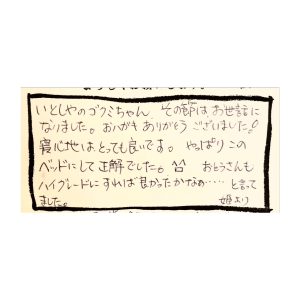 いとしやのゴクミちゃん その節は お世話に
なりました。おハガキ ありがとう ございました!
寝心地は とっても良いです。 やっぱり この
ベッドにして 正解でした。 ^^ おとうさんも
ハイグレードに すれば 良かったかなぁ…… と言って
ました。 姫より